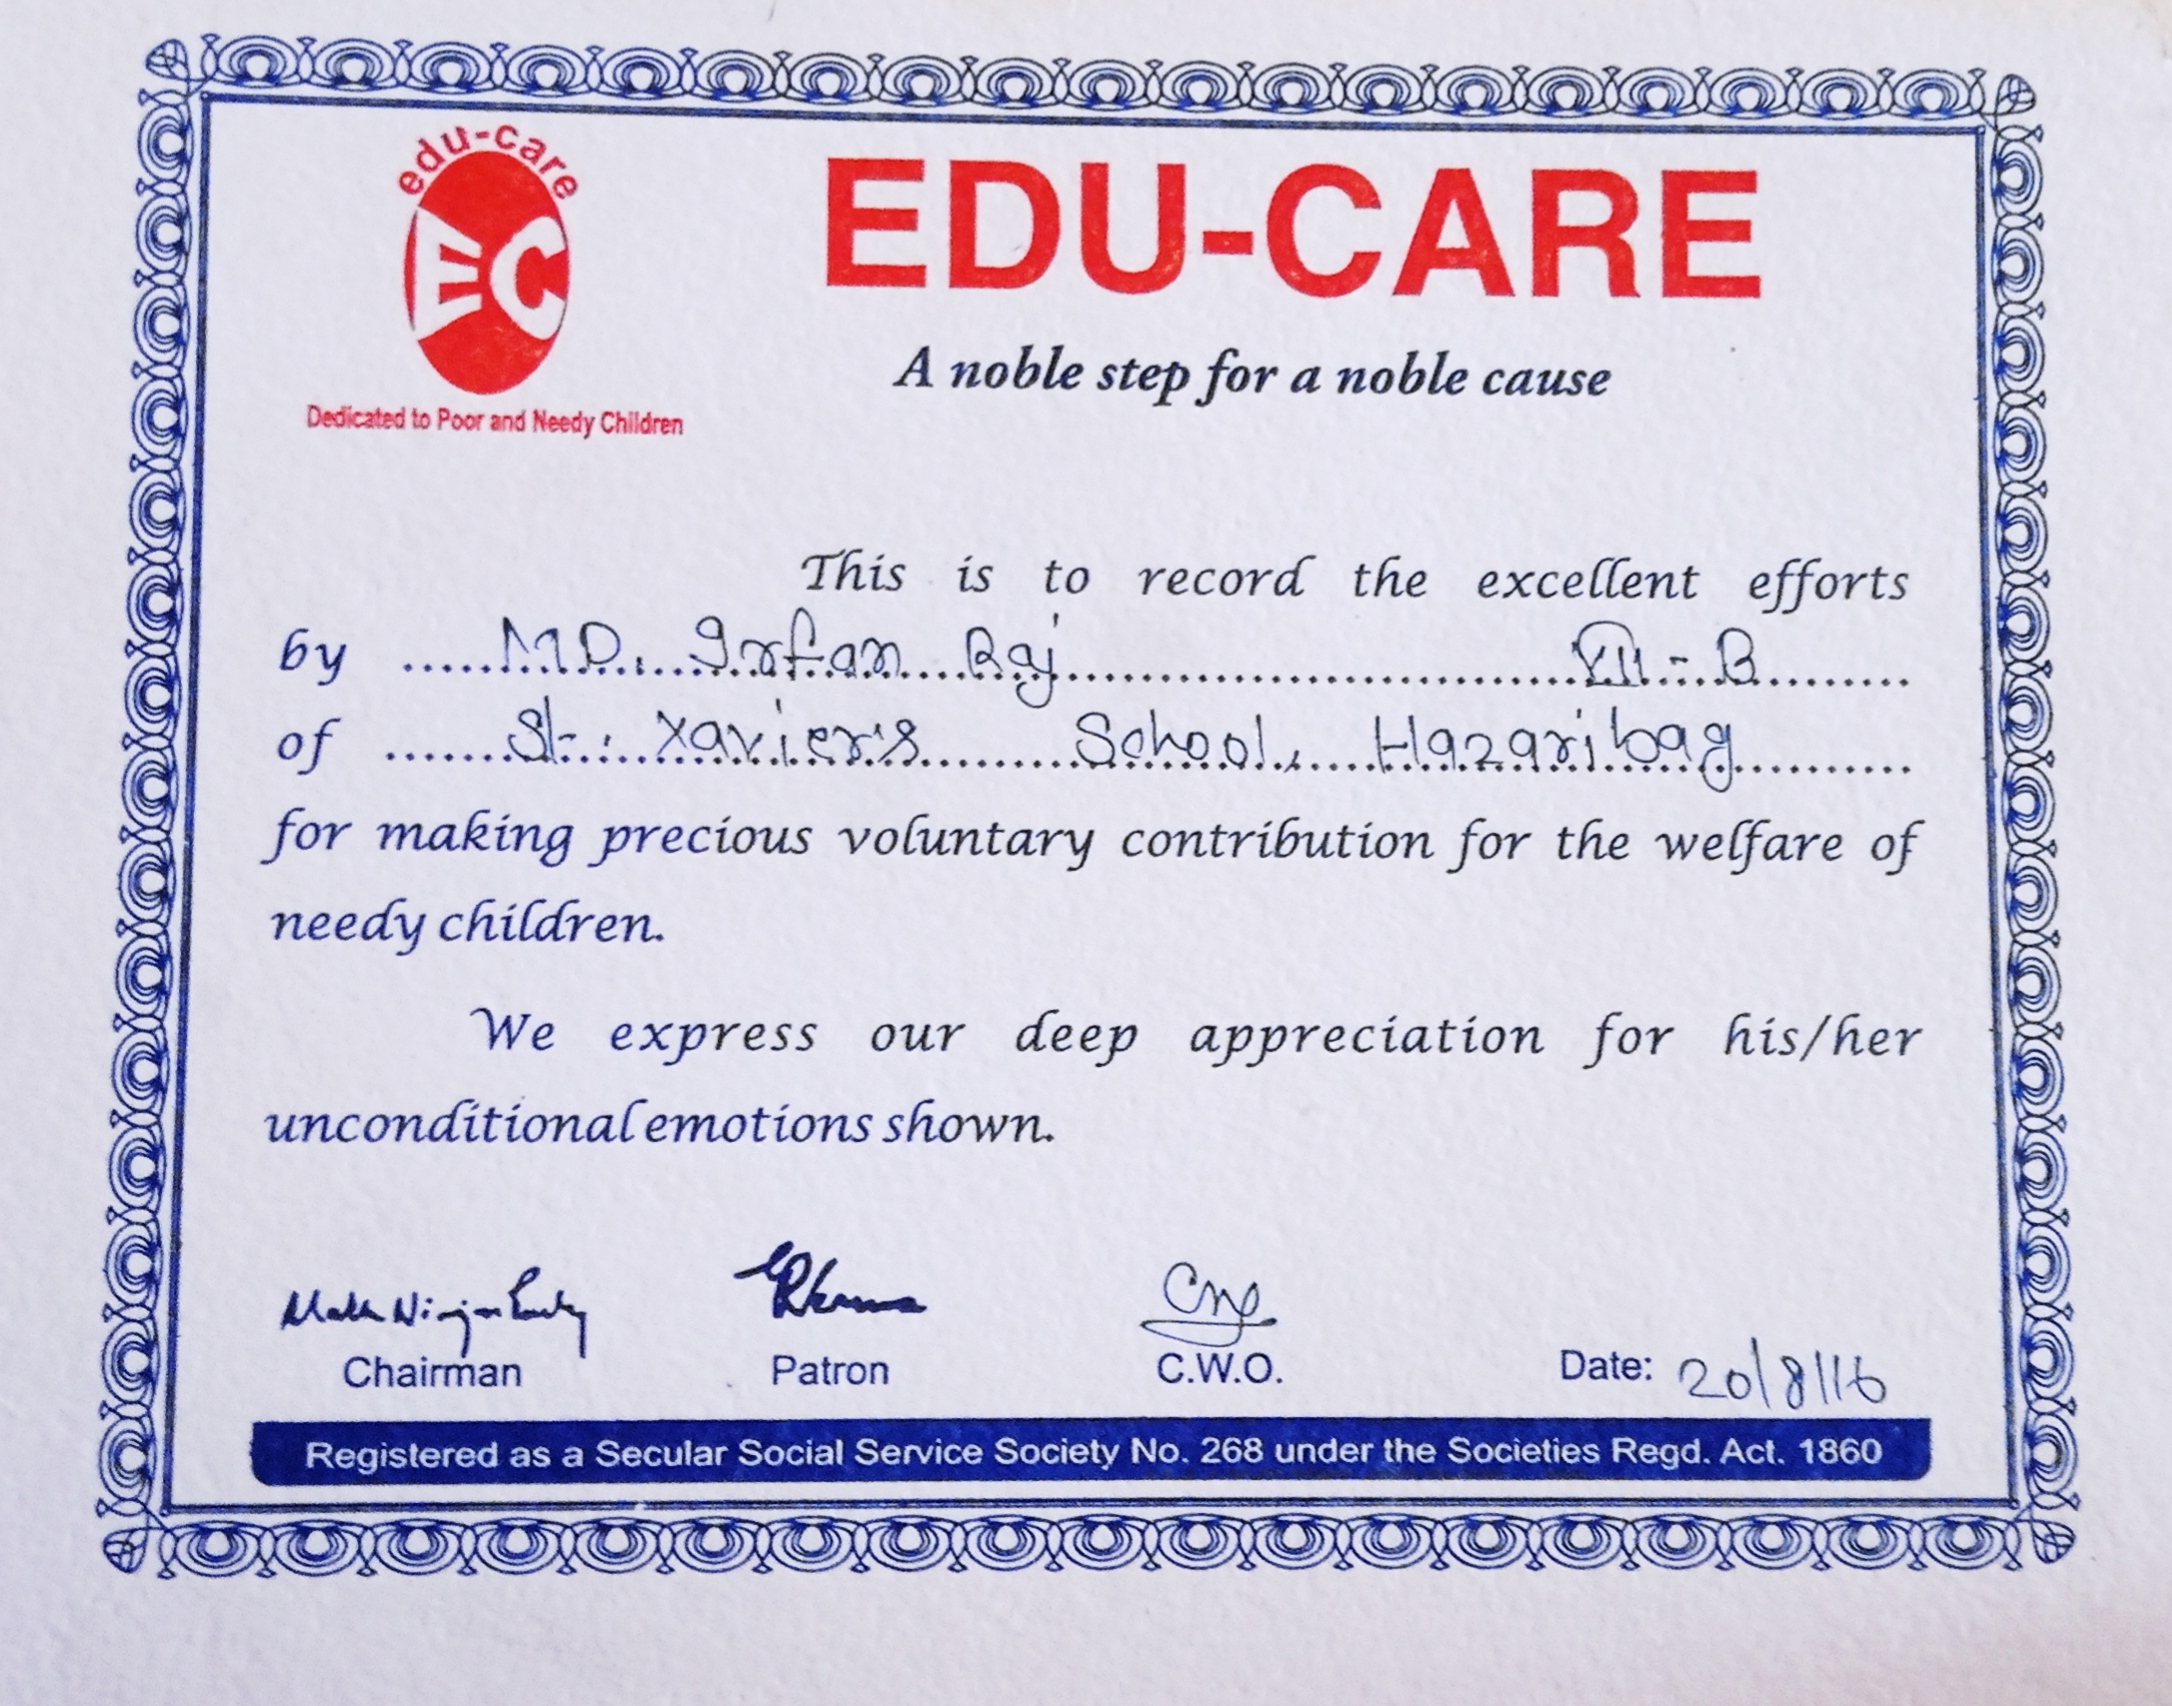 edu-care
EC
Dedicated to Poor and Needy Children
EDU-CARE
A noble step for a noble cause
This is to record the excellent efforts
by ..... MD. Irfan Raj ..... VII - B .....
of ..... St. Xavier's School, Hazaribag .....
for making precious voluntary contribution for the welfare of
needy children.
We express our deep appreciation for his/her
unconditional emotions shown.
Chairman
Patron
C.W.O.
Date: 20/8/16
Registered as a Secular Social Service Society No. 268 under the Societies Regd. Act. 1860